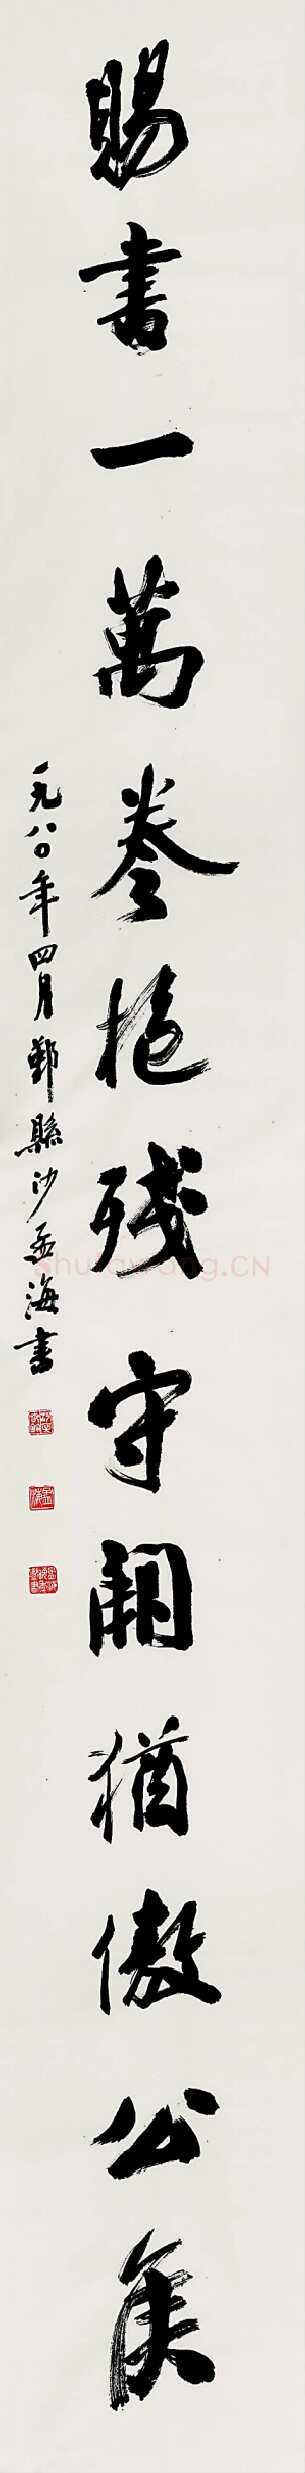 賜書一萬卷抱残守闕猶傲公侯
一九八〇年四月鄞縣沙孟海書
Shufawang.CN